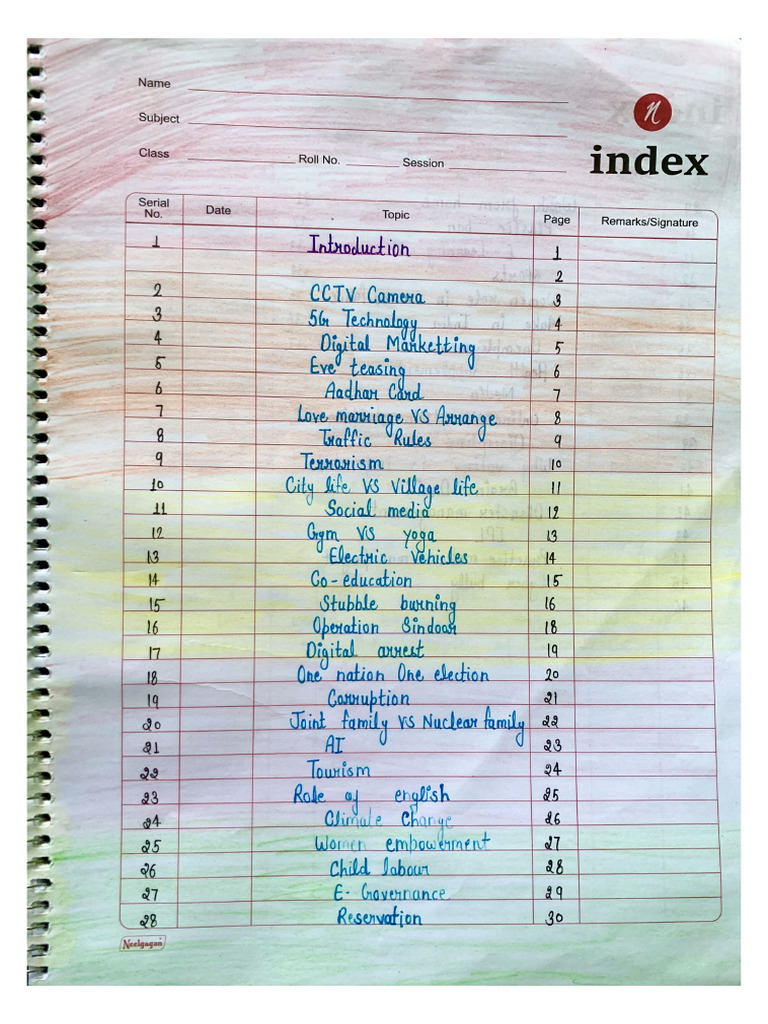 Name
Subject
Class Roll No. Session
n
index
Serial No. Date Topic Page Remarks/Signature
1 Introduction 1
2
2 CCTV Camera 3
3 5G Technology 4
4 Digital Marketting 5
5 Eve teasing 6
6 Aadhar Card 7
7 Love marriage VS Arrange 8
8 Traffic Rules 9
9 Terrorism 10
10 City life VS Village life 11
11 Social media 12
12 Gym VS yoga 13
13 Electric Vehicles 14
14 Co-education 15
15 Stubble burning 16
16 Operation Sindoor 18
17 Digital arrest 19
18 One nation One election 20
19 Corruption 21
20 Joint family VS Nuclear family 22
21 AI 23
22 Tourism 24
23 Role of english 25
24 Climate Change 26
25 Women empowerment 27
26 Child labour 28
27 E-Governance 29
28 Reservation 30
Neelgagan